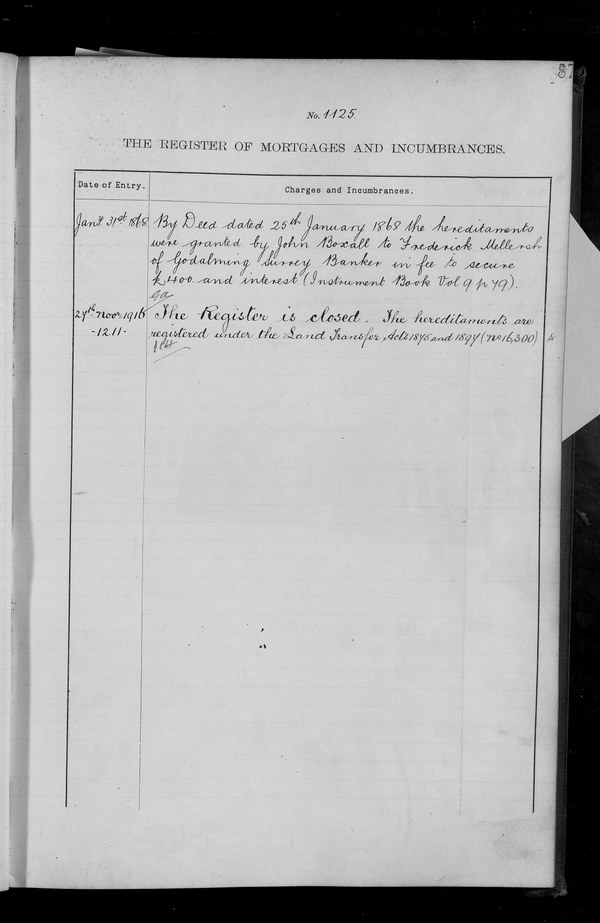 87
No. 1125.
THE REGISTER OF MORTGAGES AND INCUMBRANCES.
Date of Entry.
Charges and Incumbrances.
Jany 31st 1868 By Deed dated 25th January 1868 the hereditaments
were granted by John Boxall to Frederick Mellersh
of Godalming Surrey Banker in fee to secure
£400 and interest (Instrument Book Vol 9 p 79).
27th Novr 1916 The Register is closed. The hereditaments are
-1211- registered under the Land Transfer Acts 1875 and 1897 (No 16,300)